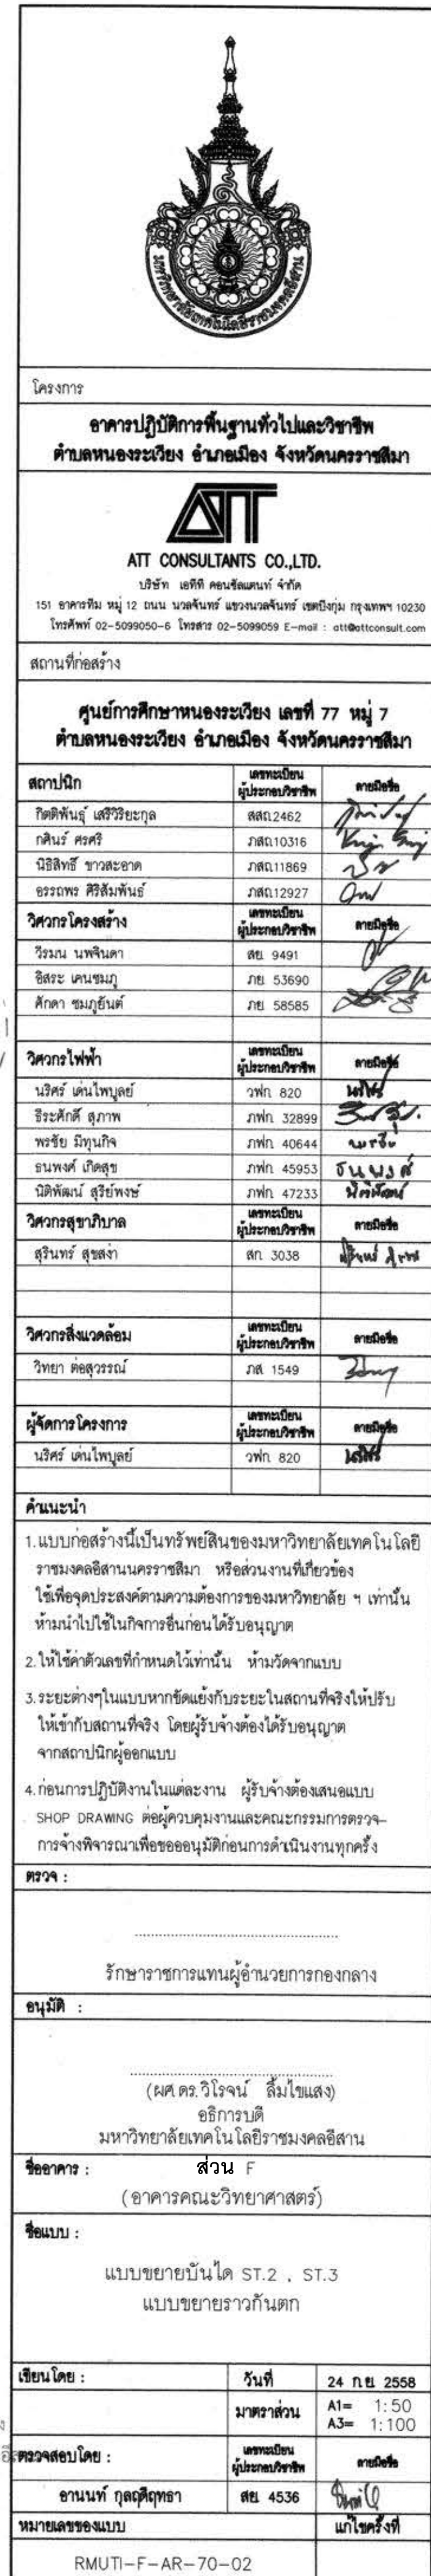 มหาวิทยาลัยเทคโนโลยีราชมงคลอีสาน
โครงการ
อาคารปฏิบัติการพื้นฐานทั่วไปและวิชาชีพ
ตำบลหนองระเวียง อำเภอเมือง จังหวัดนครราชสีมา
ATT
ATT CONSULTANTS CO.,LTD.
บริษัท เอทีที คอนซัลแตนท์ จำกัด
151 อาคารทีม หมู่ 12 ถนน นวลจันทร์ แขวงนวลจันทร์ เขตบึงกุ่ม กรุงเทพฯ 10230
โทรศัพท์ 02-5099050-6 โทรสาร 02-5099059 E-mail : att@attconsult.com
สถานที่ก่อสร้าง
ศูนย์การศึกษาหนองระเวียง เลขที่ 77 หมู่ 7
ตำบลหนองระเวียง อำเภอเมือง จังหวัดนครราชสีมา
สถาปนิก เลขทะเบียนผู้ประกอบวิชาชีพ ลายมือชื่อ
กิตติพันธุ์ เสรีวิริยะกุล สสถ.2462
กศินร์ ศรศรี ภสถ.10316
นิธิสิทธิ์ ขาวสะอาด ภสถ.11869
อรรถพร ศิริสัมพันธ์ ภสถ.12927
วิศวกรโครงสร้าง เลขทะเบียนผู้ประกอบวิชาชีพ ลายมือชื่อ
วีรมน นพจินดา สย. 9491
อิสระ เคนชมภู ภย. 53690
ศักดา ชมภูยันต์ ภย. 58585
วิศวกรไฟฟ้า เลขทะเบียนผู้ประกอบวิชาชีพ ลายมือชื่อ
นริศร์ เด่นไพบูลย์ วฟก. 820 นริศร์
ธีระศักดิ์ สุภาพ ภฟก. 32899
พรชัย มิทุนกิจ ภฟก. 40644 พรชัย
ธนพงศ์ เกิดสุข ภฟก. 45953 ธนพงศ์
นิติพัฒน์ สุรีย์พงษ์ ภฟก. 47233 นิติพัฒน์
วิศวกรสุขาภิบาล เลขทะเบียนผู้ประกอบวิชาชีพ ลายมือชื่อ
สุรินทร์ สุขสง่า สก. 3038
วิศวกรสิ่งแวดล้อม เลขทะเบียนผู้ประกอบวิชาชีพ ลายมือชื่อ
วิทยา ต่อสุวรรณ์ ภส. 1549
ผู้จัดการโครงการ เลขทะเบียนผู้ประกอบวิชาชีพ ลายมือชื่อ
นริศร์ เด่นไพบูลย์ วฟก. 820 นริศร์
คำแนะนำ
1.แบบก่อสร้างนี้เป็นทรัพย์สินของมหาวิทยาลัยเทคโนโลยี
ราชมงคลอีสานนครราชสีมา หรือส่วนงานที่เกี่ยวข้อง
ใช้เพื่อจุดประสงค์ตามความต้องการของมหาวิทยาลัย ฯ เท่านั้น
ห้ามนำไปใช้ในกิจการอื่นก่อนได้รับอนุญาต
2.ให้ใช้ค่าตัวเลขที่กำหนดไว้เท่านั้น ห้ามวัดจากแบบ
3.ระยะต่างๆในแบบหากขัดแย้งกับระยะในสถานที่จริงให้ปรับ
ให้เข้ากับสถานที่จริง โดยผู้รับจ้างต้องได้รับอนุญาต
จากสถาปนิกผู้ออกแบบ
4.ก่อนการปฏิบัติงานในแต่ละงาน ผู้รับจ้างต้องเสนอแบบ
SHOP DRAWING ต่อผู้ควบคุมงานและคณะกรรมการตรวจ-
การจ้างพิจารณาเพื่อขออนุมัติก่อนการดำเนินงานทุกครั้ง
ตรวจ :
รักษาราชการแทนผู้อำนวยการกองกลาง
อนุมัติ :
(ผศ.ดร.วิโรจน์ ลิ้มไขแสง)
อธิการบดี
มหาวิทยาลัยเทคโนโลยีราชมงคลอีสาน
ชื่ออาคาร : ส่วน F
(อาคารคณะวิทยาศาสตร์)
ชื่อแบบ :
แบบขยายบันได ST.2 , ST.3
แบบขยายราวกันตก
เขียนโดย : วันที่ 24 ก.ย. 2558
มาตราส่วน A1= 1:50
A3= 1:100
ตรวจสอบโดย : เลขทะเบียนผู้ประกอบวิชาชีพ ลายมือชื่อ
อานนท์ กุลฤดีฤทธา สย. 4536
หมายเลขของแบบ แก้ไขครั้งที่
RMUTI-F-AR-70-02